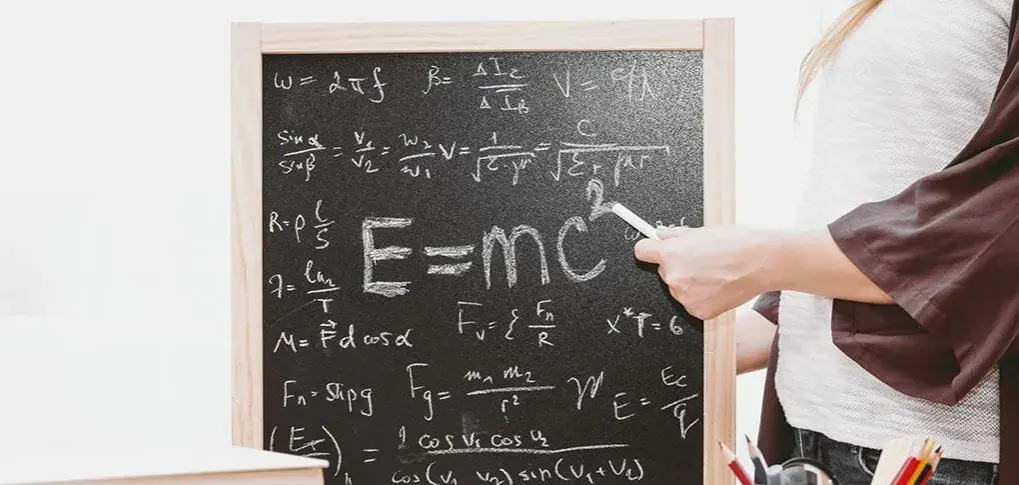 ω = 2πf β = ΔI₂ / ΔI_B V = c/λ
sinα / sinβ = v₁ / v₂ = w₂ / w₁ V = 1 / √(ε·μ) = c / √(εr μr)
R = ρ l / S
E = mc²
λ = ln2 / T
F_v = { F_n / R
x*T = 6
M = F⃗ d cosα
F_g = m₁ m₂ / r²
E = E_c / q
1 cos v₁ cos v₂ / cos(v₁ v₂) sin(v₁ + v₂)